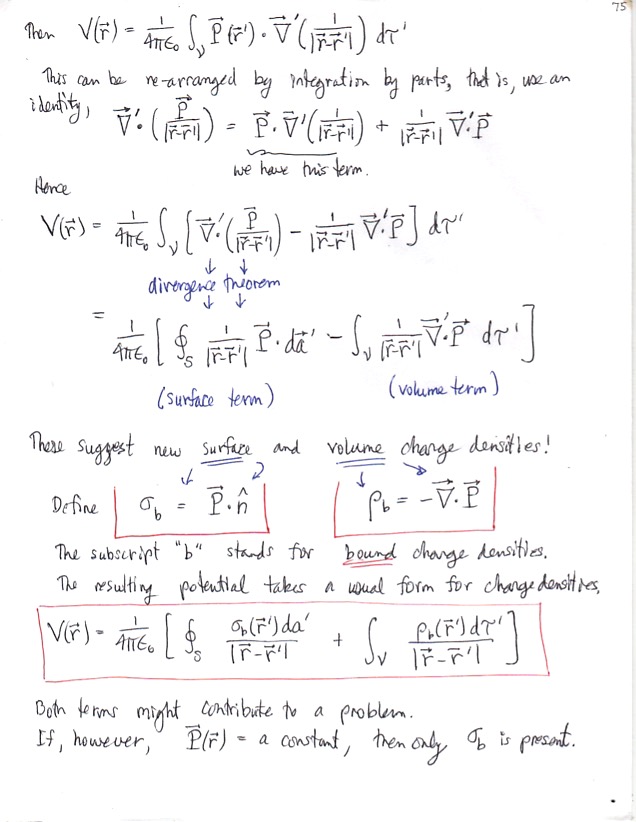 75
Then V(r⃗) = 1/4πε₀ ∫_V P⃗(r⃗')·∇⃗'(1/|r⃗-r⃗'|) dτ'
This can be re-arranged by integration by parts, that is, use an
identity, ∇⃗'·(P⃗/|r⃗-r⃗'|) = P⃗·∇⃗'(1/|r⃗-r⃗'|) + 1/|r⃗-r⃗'| ∇⃗'·P⃗
we have this term.
Hence
V(r⃗) = 1/4πε₀ ∫_V [∇⃗'·(P⃗/|r⃗-r⃗'|) - 1/|r⃗-r⃗'| ∇⃗'·P⃗] dτ'
↓ ↓
divergence theorem
↓ ↓
= 1/4πε₀ [∮_S 1/|r⃗-r⃗'| P⃗·da⃗' - ∫_V 1/|r⃗-r⃗'| ∇⃗'·P⃗ dτ']
(surface term) (volume term)
These suggest new surface and volume charge densities!
Define σ_b = P⃗·n̂ ρ_b = -∇⃗·P⃗
The subscript "b" stands for bound charge densities.
The resulting potential takes a usual form for charge densities,
V(r⃗) = 1/4πε₀ [∮_S σ_b(r⃗')da'/|r⃗-r⃗'| + ∫_V ρ_b(r⃗')dτ'/|r⃗-r⃗'|]
Both terms might contribute to a problem.
If, however, P⃗(r⃗) = a constant, then only σ_b is present.